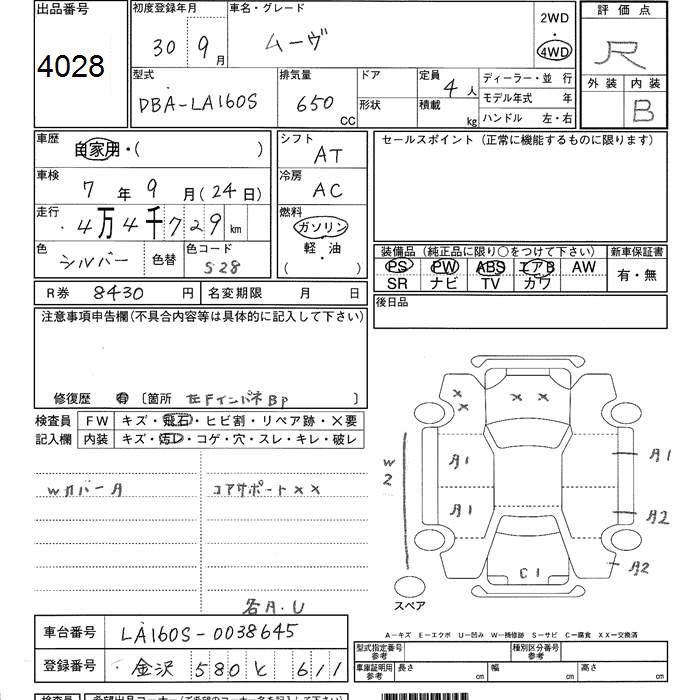 出品番号 4028
初度登録年月 30年 9月
車名・グレード ムーヴ
2WD
4WD
評価点 R
外装 内装 B
型式 DBA-LA160S
排気量 650 CC
ドア
形状
定員 4人
積載 kg
ディーラー・並 行
モデル年式 年
ハンドル 左・右
車歴 自家用・( )
車検 7年 9月(24日)
走行 4万4千729km
色 シルバー 色替
色コード S28
シフト AT
冷房 AC
燃料 ガソリン
軽・油
( )
セールスポイント (正常に機能するものに限ります)
装備品 (純正品に限り○をつけて下さい)
PS PW ABS エアB AW
SR ナビ TV カワ
新車保証書
有・無
R券 8430円 名変期限 月 日
後日品
注意事項申告欄(不具合内容等は具体的に記入して下さい)
修復歴 有 〔箇所 左FインパネBP 〕
検査員 FW キズ・飛石・ヒビ割・リペア跡・×要
記入欄 内装 キズ・汚レ・コゲ・穴・スレ・キレ・破レ
Wカバー
コアサポート××
W2
C1
スペア
A-キズ E-エクボ U-凹み W-補修跡 S-サビ C-腐食 XX-交換済
車台番号 LA160S-0038645
登録番号 金沢 580 と 611
型式指定番号 参考
種別区分番号 参考
車庫証明用 参考 長さ cm 幅 cm 高さ cm